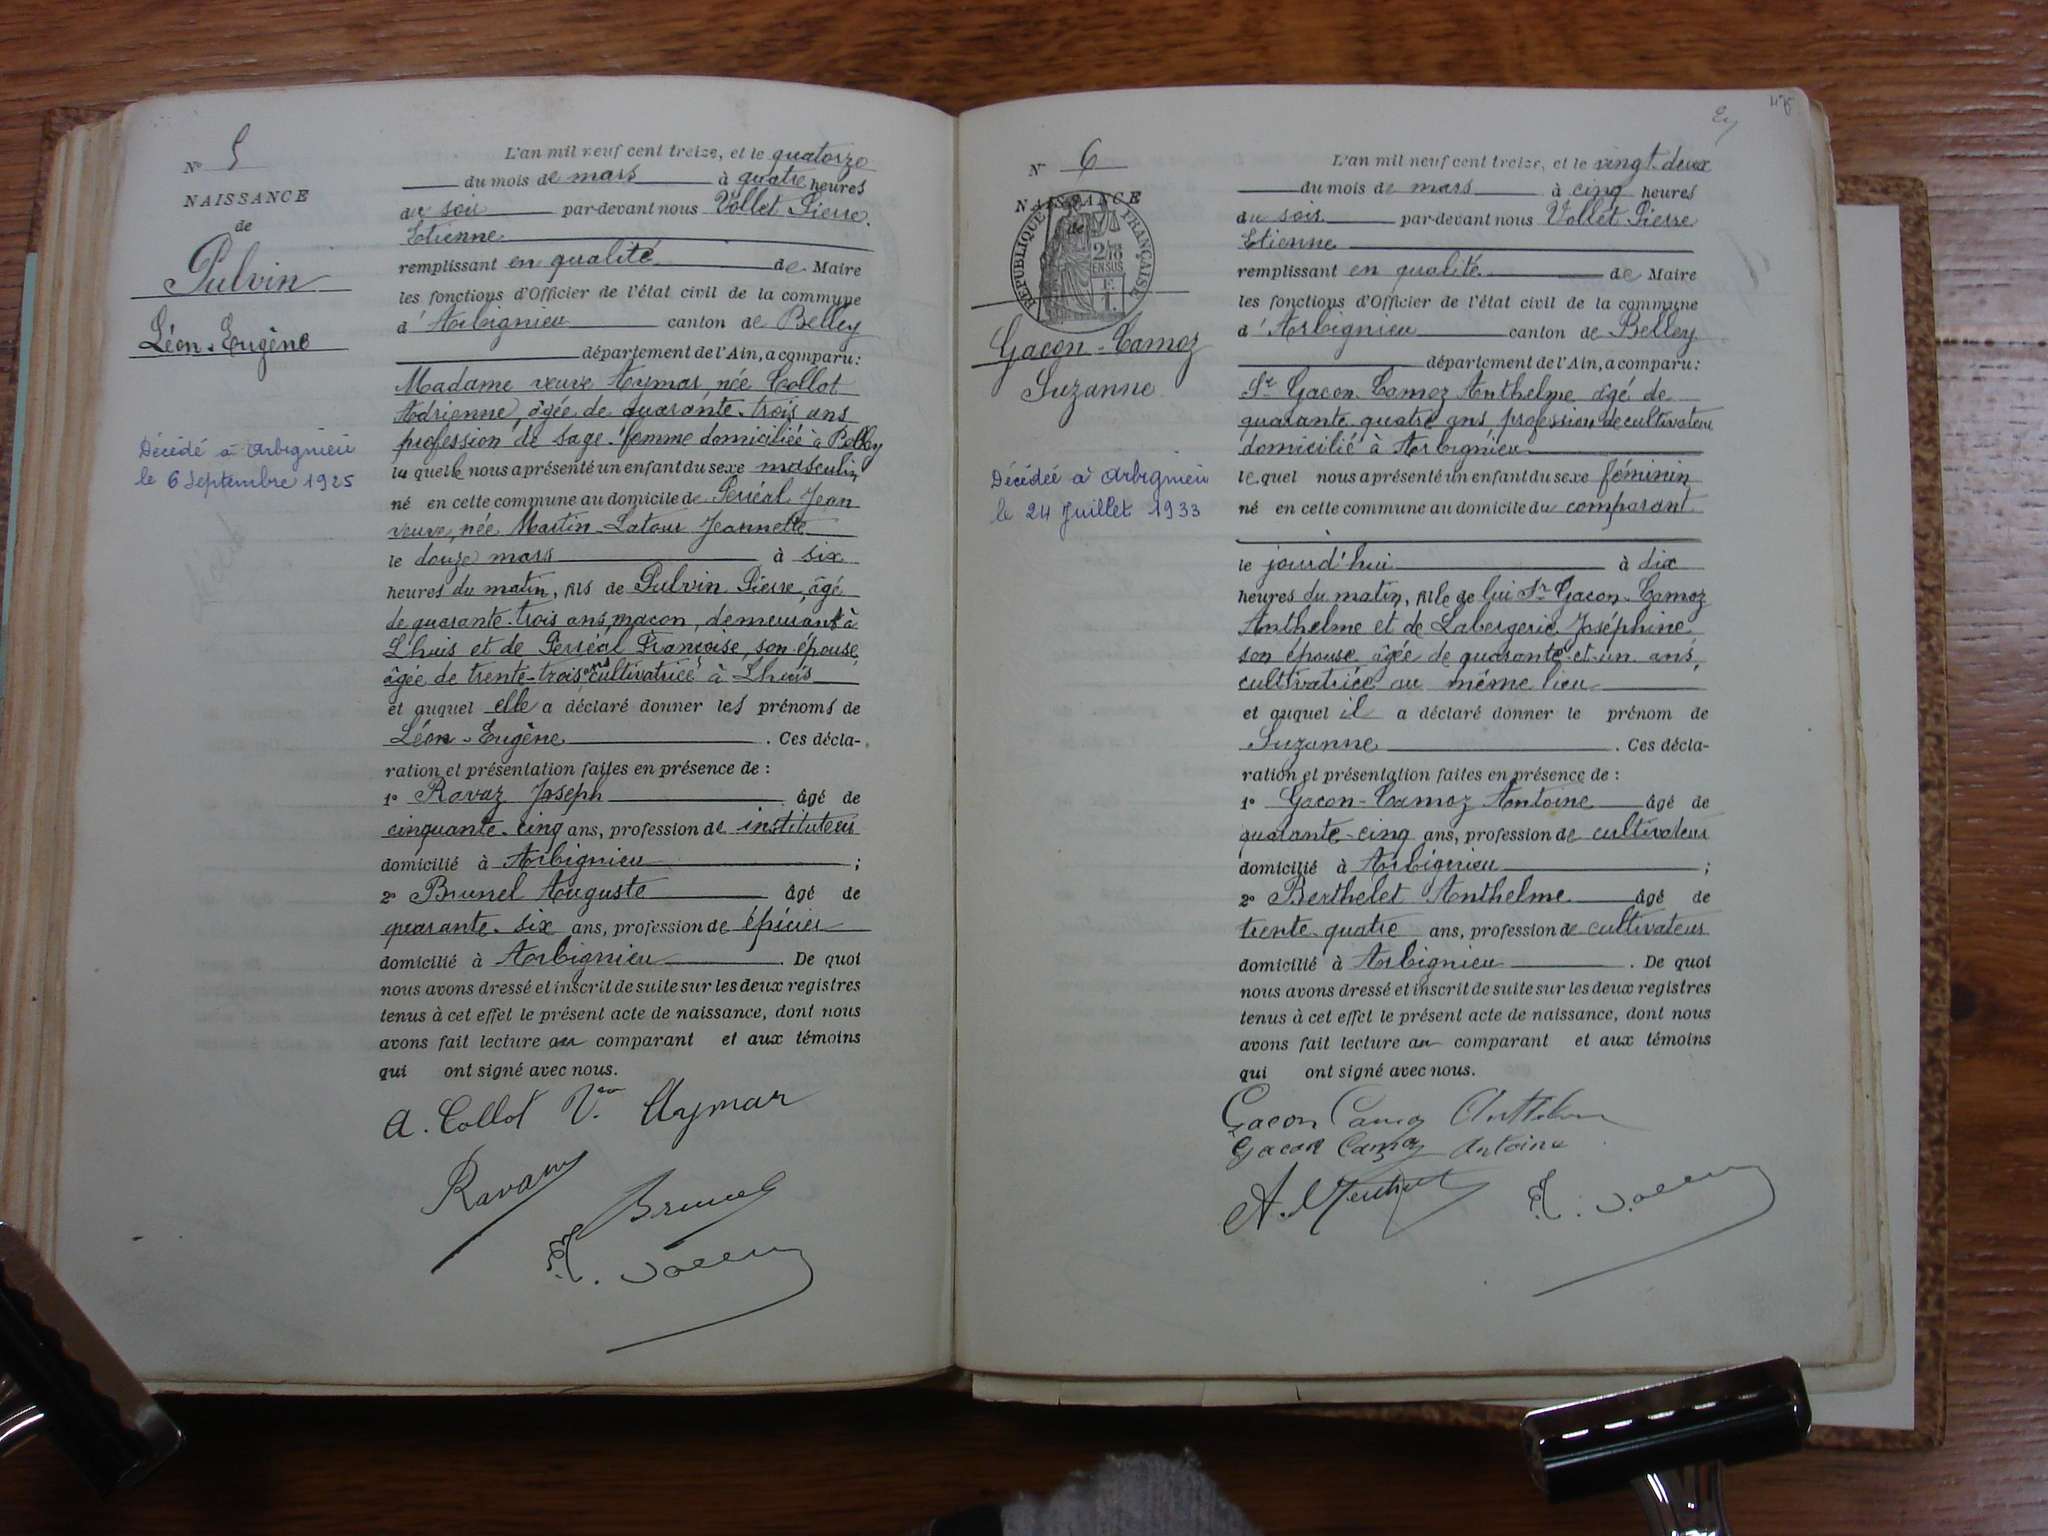 N° 5
NAISSANCE
de
Pulvin
Léon-Eugène
Décédé à Arbignieu
le 6 Septembre 1925
L'an mil neuf cent treize, et le quatorze
du mois de mars à quatre heures
du soir par-devant nous Vollet Pierre
Etienne
remplissant en qualité de Maire
les fonctions d'Officier de l'état civil de la commune
d'Arbignieu canton de Belley
département de l'Ain, a comparu:
Madame veuve Aymar, née Collot
Adrienne, âgée de quarante-trois ans
profession de sage-femme domiciliée à Belley
la quelle nous a présenté un enfant du sexe masculin
né en cette commune au domicile de Perréal Jean
veuve, née Martin-Latour Jeannette
le douze mars à six
heures du matin, fils de Pulvin Pierre, âgé
de quarante-trois ans, maçon, demeurant à
Lhuis et de Perréal Françoise, son épouse
âgée de trente-trois ans cultivatrice à Lhuis
et auquel elle a déclaré donner les prénoms de
Léon-Eugène. Ces décla-
ration et présentation faites en présence de :
1° Ravaz Joseph âgé de
cinquante-cinq ans, profession de instituteur
domicilié à Arbignieu ;
2° Brunel Auguste âgé de
quarante-six ans, profession de épicier
domicilié à Arbignieu. De quoi
nous avons dressé et inscrit de suite sur les deux registres
tenus à cet effet le présent acte de naissance, dont nous
avons fait lecture au comparant et aux témoins
qui ont signé avec nous.
A. Collot Vve Aymar
Ravaz
Brunel
E. Vollet
N° 6
NAISSANCE
de
RÉPUBLIQUE FRANÇAISE
2/10
EN SUS
Gacon-Camoz
Suzanne
Décédée à Arbignieu
le 24 Juillet 1933
L'an mil neuf cent treize, et le vingt-deux
du mois de mars à cinq heures
du soir par-devant nous Vollet Pierre
Etienne
remplissant en qualité de Maire
les fonctions d'Officier de l'état civil de la commune
d'Arbignieu canton de Belley
département de l'Ain, a comparu:
Sr Gacon-Camoz Anthelme âgé de
quarante quatre ans profession de cultivateur
domicilié à Arbignieu
lequel nous a présenté un enfant du sexe féminin
né en cette commune au domicile du comparant
le jourd'hui à dix
heures du matin, fille de lui Sr Gacon-Camoz
Anthelme et de Labergerie Joséphine
son épouse âgée de quarante-et-un ans,
cultivatrice au même lieu
et auquel il a déclaré donner le prénom de
Suzanne. Ces décla-
ration et présentation faites en présence de :
1° Gacon-Camoz Antoine âgé de
quarante-cinq ans, profession de cultivateur
domicilié à Arbignieu ;
2° Berthelet Anthelme âgé de
trente-quatre ans, profession de cultivateur
domicilié à Arbignieu. De quoi
nous avons dressé et inscrit de suite sur les deux registres
tenus à cet effet le présent acte de naissance, dont nous
avons fait lecture au comparant et aux témoins
qui ont signé avec nous.
Gacon Camoz Anthelme
Gacon Camoz Antoine
E. Vollet